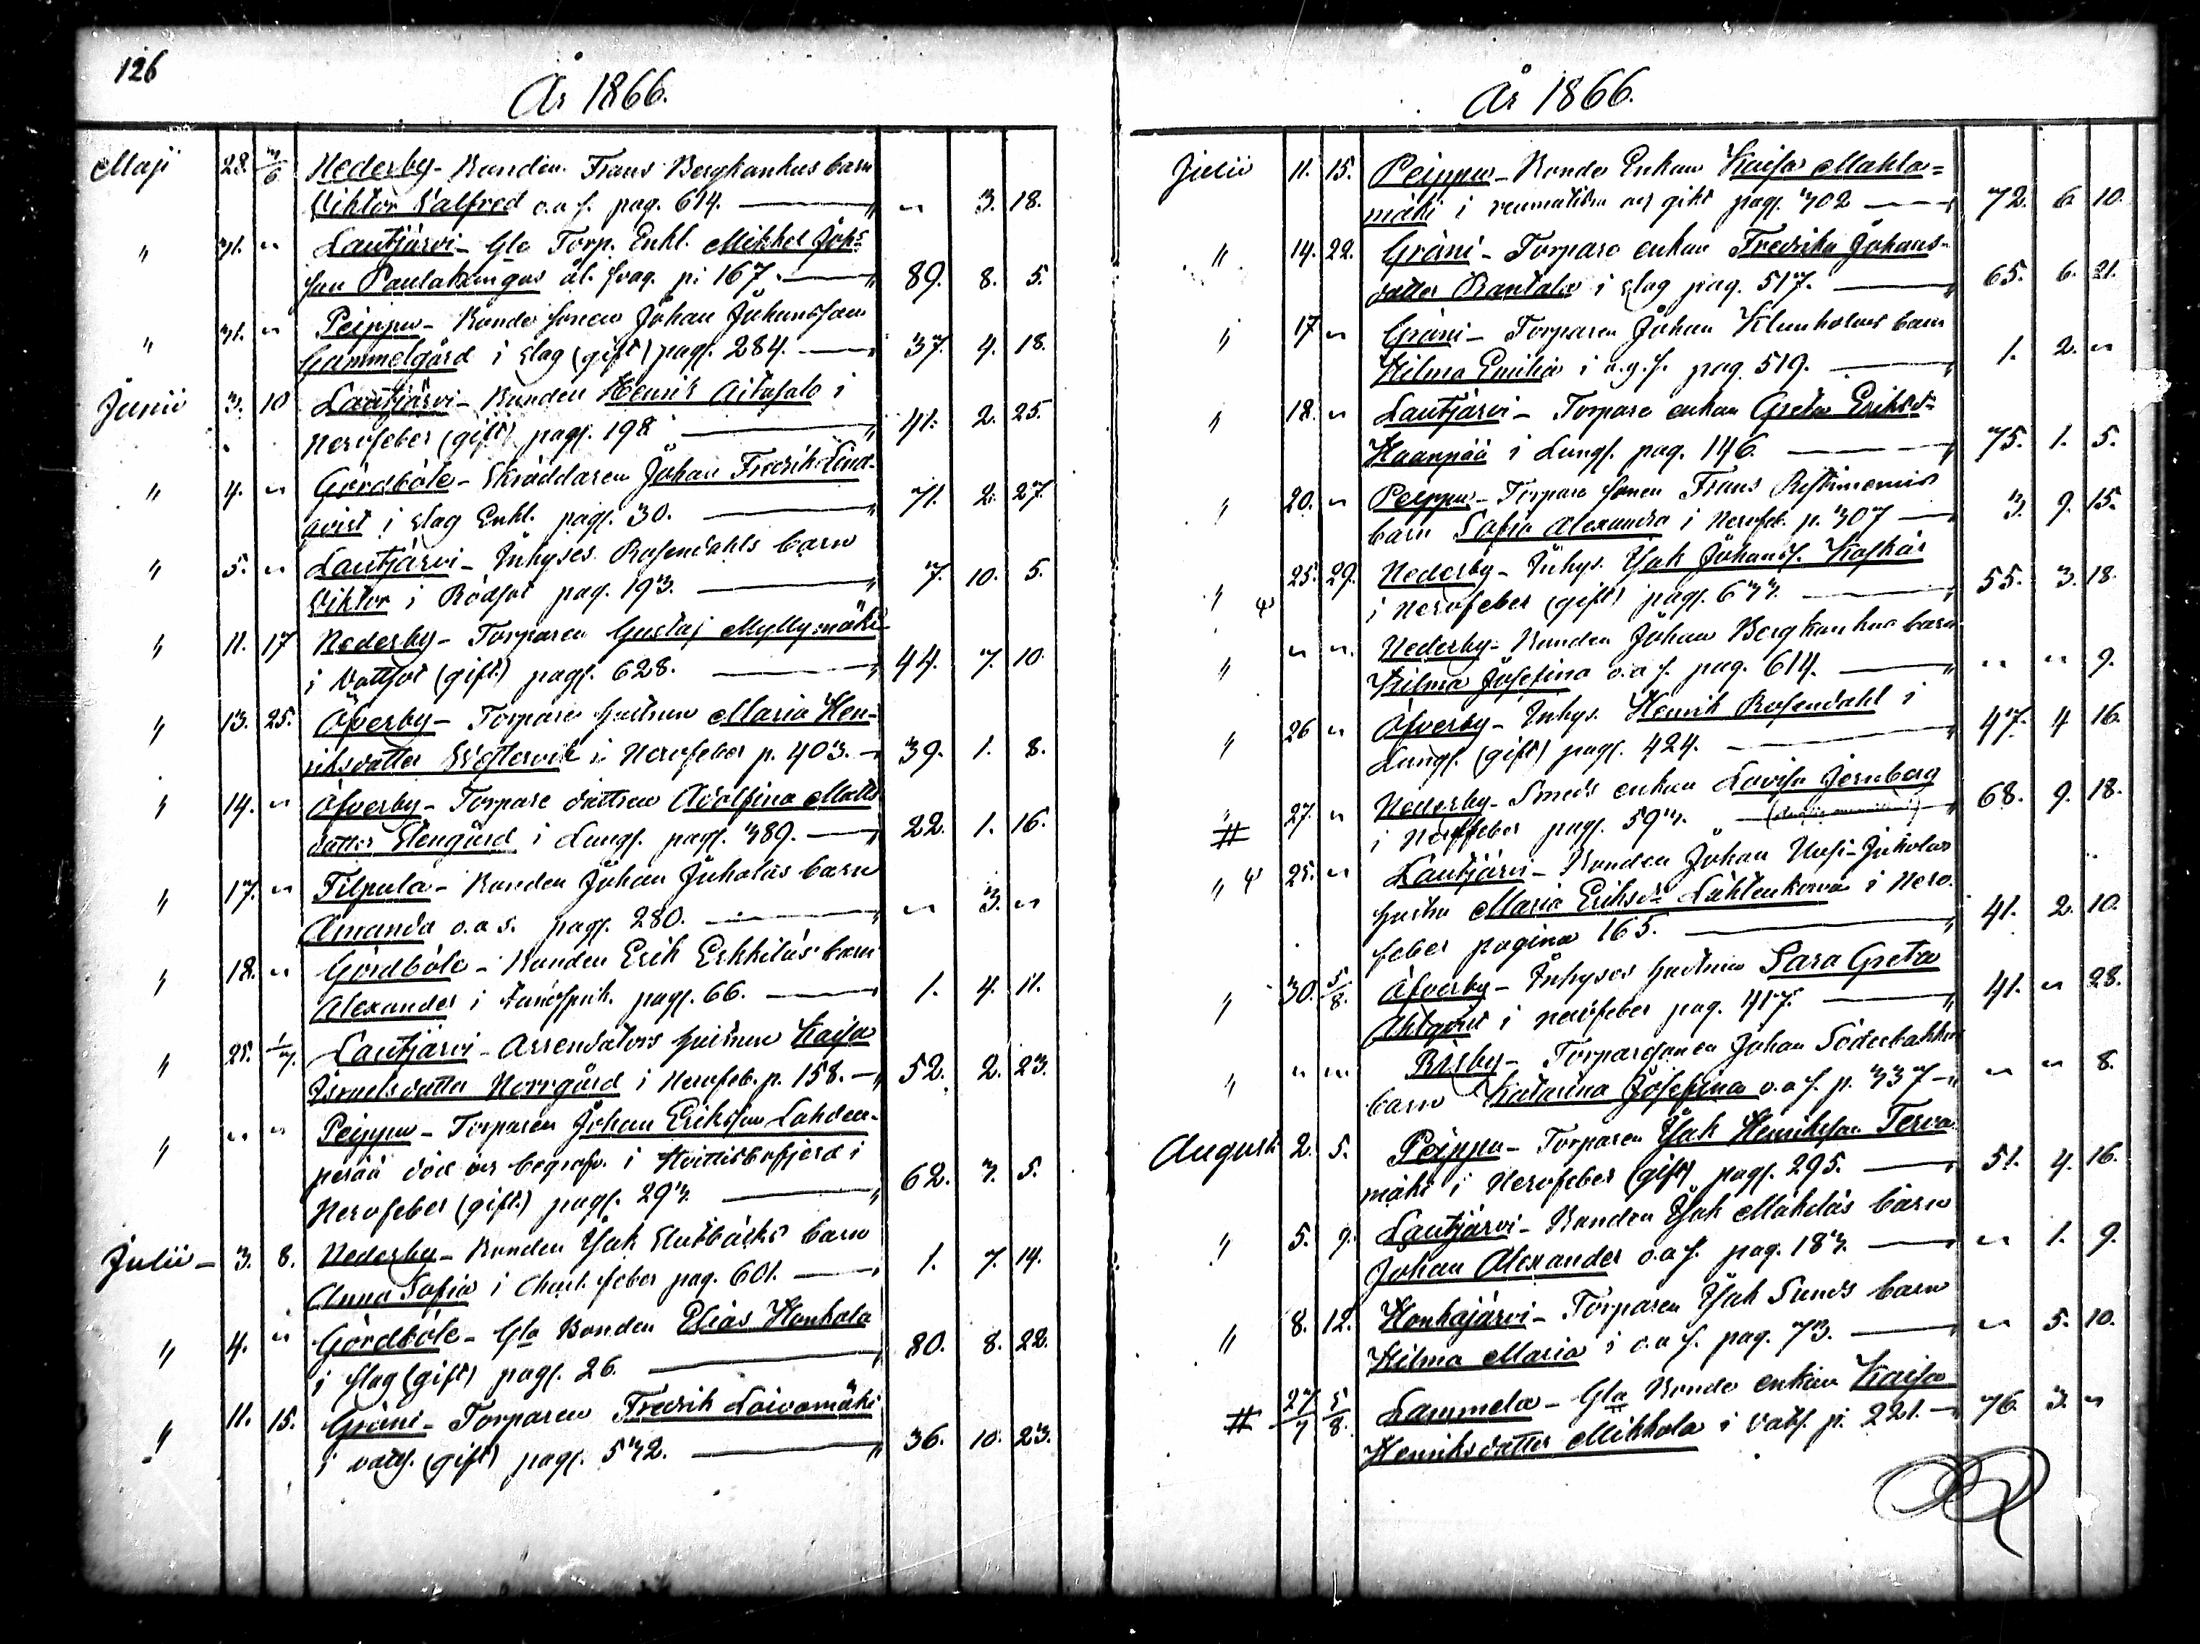 126
År 1866.
Maji 28. 3/6 Nederby - Bonden Frans Bergkankas barn
Viktor Valfred o.a.s. pag. 614. — " 3. 18.
" 31. " Lautjärvi - Gla Torp. Enkl. Mikkel Johs-
son Paulakangas ål. svag. p. 167. — 89. 8. 5.
" 31. " Peippu - Bonde sonen Johan Johansson
Gammelgård i slag (gift) pag. 284. — 37. 4. 18.
Junii 3. 10 Lautjärvi - Bonden Henrik Aitasalo i
Nervfeber (gift) pag. 198 — 41. 2. 25.
" 4. " Gårdböle - Skräddaren Johan Fredrik Lind-
qvist i slag Enkl. pag. 30. — 71. 2. 27
" 5. " Lautjärvi - Inhyses Rosendahls barn
Viktor i Rödsot pag. 193. — 7. 10. 5.
" 11. 17 Nederby - Torparen Gustaf Myllymäki
i Vattsot (gift) pag. 628. — 44. 7. 10.
" 13. 25. Öfverby - Torpare hustrun Maria Hen-
riksdotter Westervik i Nervfeber p. 403. — 39. 1. 8.
" 14. " Öfverby - Torpare dottren Adolfina Matts
dotter Stengård i Lungs. pag. 389. — 22. 1. 16.
" 17. " Filpula - Bonden Johan Juholas barn
Amanda o.a.s. pag. 280. — " 3. "
" 18. " Gårdböle - Bonden Erik Erkkilas barn
Alexander i tandspr. pag. 66. — 1. 4. 11.
" 25. 1/7. Lautjärvi - Arrendators hustrun Kaisa
Israelsdotter Norrgård i Nervfeb. p. 158. — 52. 2. 23.
" " " Peippu - Torparen Johan Eriksson Lahden-
perää död och begrafv. i Hvittisbofjerd i
Nervfeber (gift) pag. 293. — 62. 3. 5.
Julii - 3. 8. Nederby - Bonden Isak Slutbäcks barn
Anna Sofia i Charl. feber pag. 601. — 1. 7. 14.
" 4. " Gårdböle - Gla Bonden Elias Honkala
i slag (gift) pag. 26. — 80. 8. 22.
" 11. 15. Gräni - Torparen Fredrik Loivamäki
i vatts. (gift) pag. 532. — 36. 10. 23.
År 1866.
Julii 11. 15. Peippu - Bonde Enkan Kaisa Mahla-
mäki i reumatism och gikt pag. 302 — 72. 6 10.
" 14. 22. Gräni - Torpare enkan Fredrika Johans-
dotter Rantala i slag pag. 517. — 65. 6. 21.
" 17 " Gräni - Torparen Johan Klemholas barn
Hilma Emilia i o.a.s. pag. 519. — 1. 2. "
" 18. " Lautjärvi - Torpare enkan Greta Eriksd:
Haanpää i Lungs. pag. 146. — 75. 1. 5.
" 20. " Peippu - Torpare sonen Frans Ristiniemis
barn Sofia Alexandra i Nervfeb. p. 307 — 3. 9. 15.
" 25. 29. Nederby - Inhys. Isak Johanss. Kaskas
i Nervfeber (gift) pag. 633. — 55. 3. 18.
" " " Nederby - Bonden Johan Bergkankas barn
Hilma Josefina o.a.s. pag. 614. — " " 9.
" 26 " Öfverby - Inhys. Henrik Rosendahl i
Lungs. (gift) pag. 424. — 47. 4 16.
# 27. " Nederby - Smeds enkan Lovisa Jernberg
i Nervfeber pag. 593. — 68. 9. 18.
" 25. " Lautjärvi - Bonden Johan Uusi-Juholas
hustru Maria Eriksdr. Lähteenkorva i Nerv-
feber pagina 165. — 41. 2. 10.
" 30. 5/8. Öfverby - Inhyses hustrun Sara Greta
Ahlqvist i nervfeber pag. 417. — 41. " 28.
" " " Påsby - Torparesonen Johan Söderbackas
barn Katarina Josefina o.a.s. p. 337 — " " 8.
Augusti 2. 5. Peippu - Torparen Isak Henriksson Terva
mäki i Nervfeber (gift) pag. 295. — 51. 4. 16.
" 5. 9. Lautjärvi - Bonden Isak Mäkiläs barn
Johan Alexander o.a.s. pag. 183. — " 1. 9.
" 8. 12. Honkajärvi - Torparen Isak Sunds barn
Hilma Maria i o.a.s. pag. 73. — " 5. 10.
# 27/7 5/8. Lammela - Gla Bonde enkan Kaisa
Henriksdotter Mikkola i vatts. p. 221. — 76. 3. "